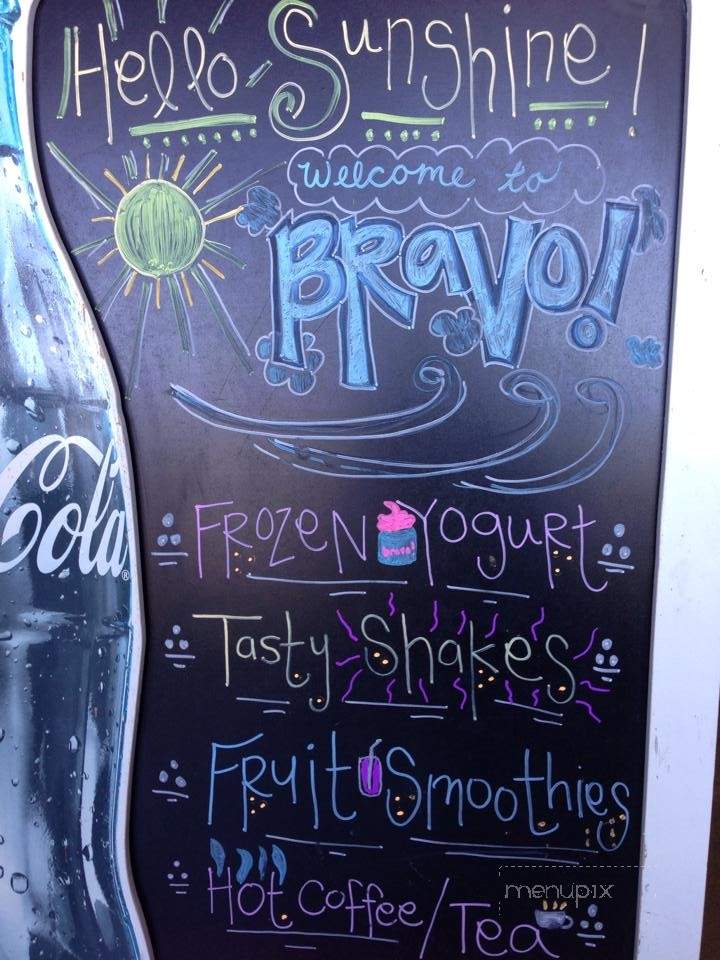 Hello Sunshine!
Welcome to
BRavo!
Cola®
FRozeN Yogurt
bravo!
Tasty Shakes
FRuit Smoothies
Hot Coffee/Tea
menupix